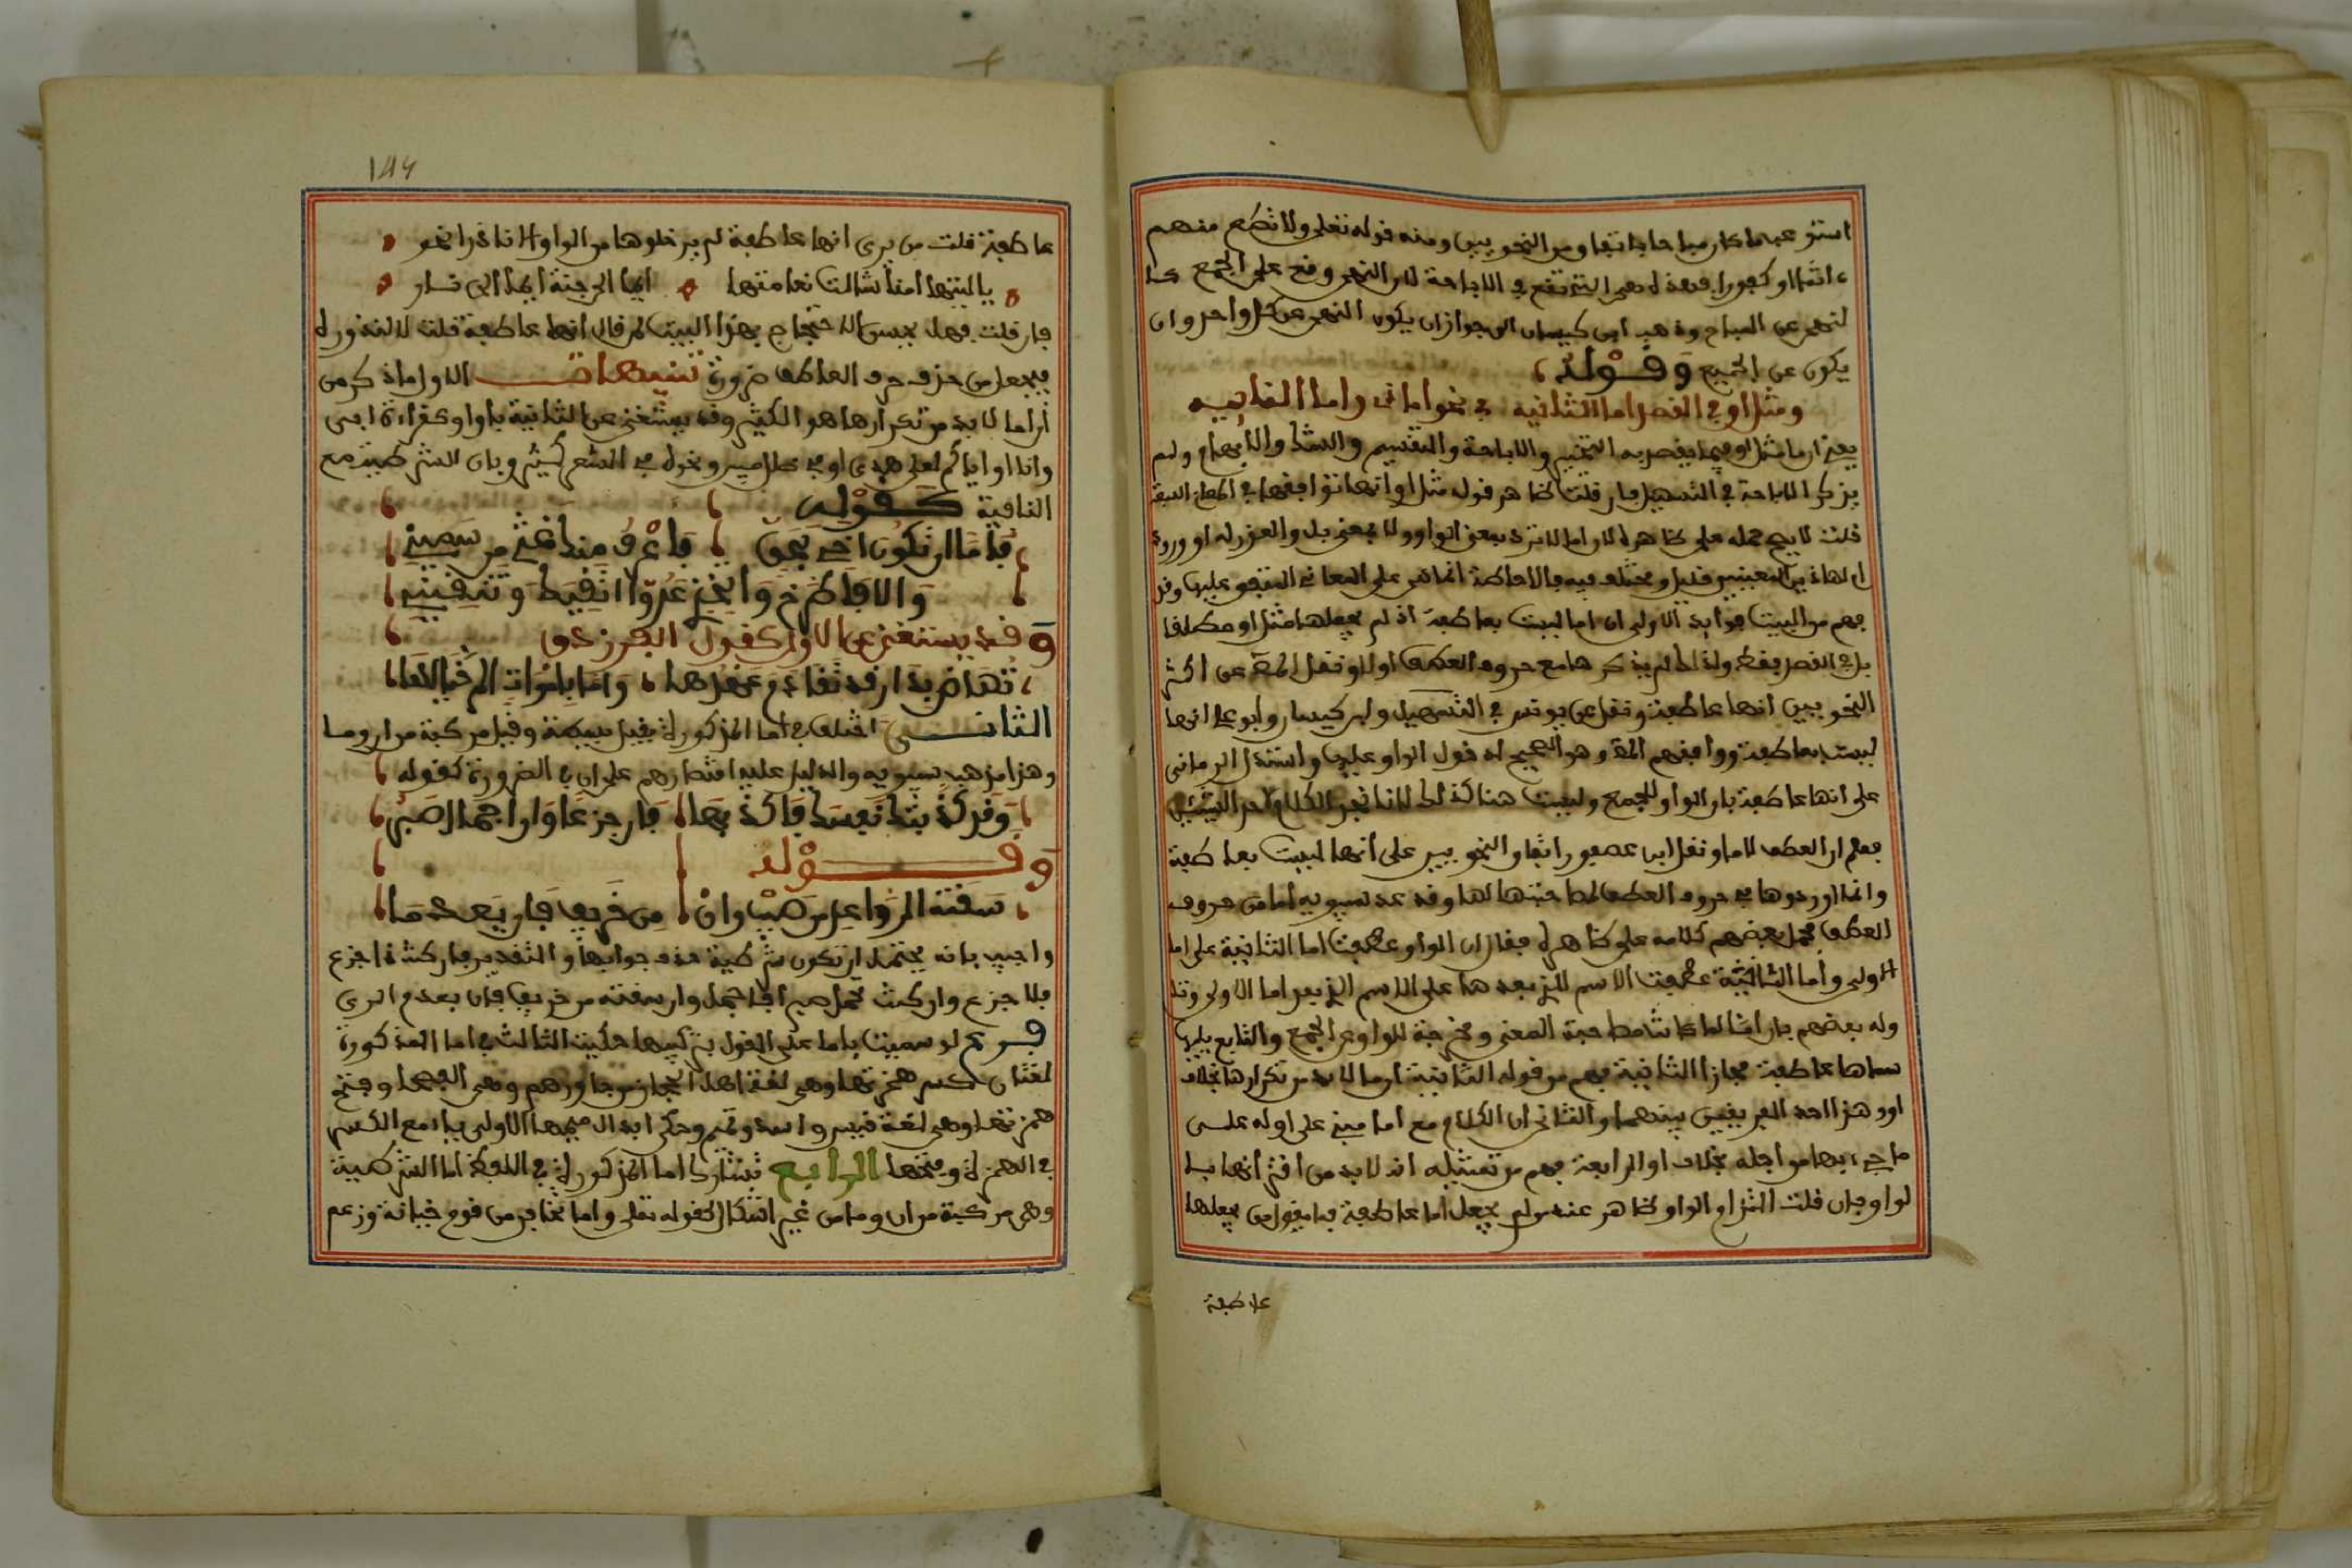 استوعبها كان مباحا باتفاق من النحويين ومنه قوله تعلى ولا تطع منهم
ءاثما او كفورا فهذه هي التي تقع في الاباحة لان النهي وقع على الجمع
لنهي عن المباح وذهب ابن كيسان الى جواز ان يكون النهي عن كل واحد وان
يكون عن الجميع وقوله
ومثل او في القصد اما الثانيه في نحو اما ذي واما النائيه
يعني ان اما مثل او فيما يقصد به التخيير والاباحة والتقسيم والشك والابهام ولم
يذكر الاباحة في التسهيل فان قلت ظاهر قوله مثل او انها توافقها في المعاني السبعة
قلت لا يصح حمله على ظاهره لان اما لا ترد بمعنى الواو ولا بمعنى بل والعذر له ان ورود
او لهاذين المعنيين قليل ومختلف فيه فالاحالة انما هي على المعاني المتفق عليها وقد
فهم من البيت فوايد الاولى ان اما ليست بعاطفة اذ لم يجعلها مثل او مطلقا
بل في القصد فقط ولذلك لم يذكرها مع حروف العطف اولا ونقل المص عن اكثر
النحويين انها عاطفة ونقل عن يونس في التسهيل وابن كيسان وابو علي انها
ليست بعاطفة ووافقهم المص وهو الصحيح لدخول الواو عليها واستدل الرماني
على انها عاطفة بان الواو للجمع وليست هنا كذلك لانا نجد الكلام لاحد الشيئين
فعلم ان العطف لاما ونقل ابن عصفور اتفاق النحويين على انها ليست بعاطفة
وانما اوردوها في حروف العطف لمصاحبتها لها وقد عد سيبويه اما من حروف
العطف فحمل بعضهم كلامه على ظاهره فقال ان الواو عطفت اما الثانية على اما
الاولى واما الثانية عطفت الاسم الذي بعدها على الاسم الذي بعد اما الاولى وتا
وله بعضهم بان اما لما كانت مصاحبة المعنى ومخرجة للواو عن الجمع والتابع يليها
سماها عاطفة مجازا الثانية فهم من قوله الثانية ان اما لا بد من تكرارها بخلاف
او وهذا احد الفريقين بينهما والثاني ان الكلام مع اما مبني على اوله على
ما جيء بها من اجله بخلاف او الرابعة فهم من تمثيله انه لا بد من اقترانها با
لواو فان قلت التزام الواو ظاهر عند من لم يجعل اما عاطفة فما يقول من يجعلها
عاطفة
عاطفة قلت من يرى انها عاطفة لم ير خلوها من الواو الا نادرا نحو
يا ليتها امنا شالت نعامتها ايما الى جنة ايما الى نار
فان قلت فهل يحسن الاحتجاج بهذا البيت لمن قال انها عاطفة قلت لا لندوره
فيجعل من حذف حرف العطف ضرورة تنبيهات الاول ما ذكر من
ان اما لا بد من تكرارها هو الكثير وقد يستغنى عن الثانية باو كقراءة ابي
وانا او اياكم لعلى هدى او في ظلال مبين ونحوه في الشعر كثير وبان الشرطية مع
النافية كقوله
فاما ان تكون اخي بحق فاعرف منك غثي من سميني
والا فاطرحني واتخذني عدوا اتقيك وتتقيني
وقد يستغنى عن الاولى كقول الفرزدق
تهاض بدار قد تقادم عهدها واما باموات الم خيالها
الثاني اختلف في اما المذكورة فقيل بسيطة وقيل مركبة من ان وما
وهذا مذهب سيبويه والدليل عليه اقتصارهم على ان في الضرورة كقوله
وقد كذبتك نفسك فاكذبها فان جزعا وان اجمال صبر
وقوله
سقته الرواعد من صيب وان من خريف فلن يعدما
واجيب بانه يحتمل ان تكون شرطية حذف جوابها والتقدير فان كنت ذا جزع
فلا جزع وان كنت مجمل صبر فاجمل وان سقته من خريف فلن يعدم الري
فرع لو سميت باما على القول بتركيبها حكيت الثالث في اما المذكورة
لغتان كسر همزتها وهي لغة اهل الحجاز ومن جاورهم وهي الفصحى وفتح
همزتها وهي لغة قيس واسد وتميم وحكي ابدال ميمها الاولى ياء مع الكسر
في الهمزة وفتحها الرابع تشارك اما المذكورة في اللفظ اما الشرطية
وهي مركبة من ان وما من غير اشكال كقوله تعلى واما تخافن من قوم خيانة وزعم